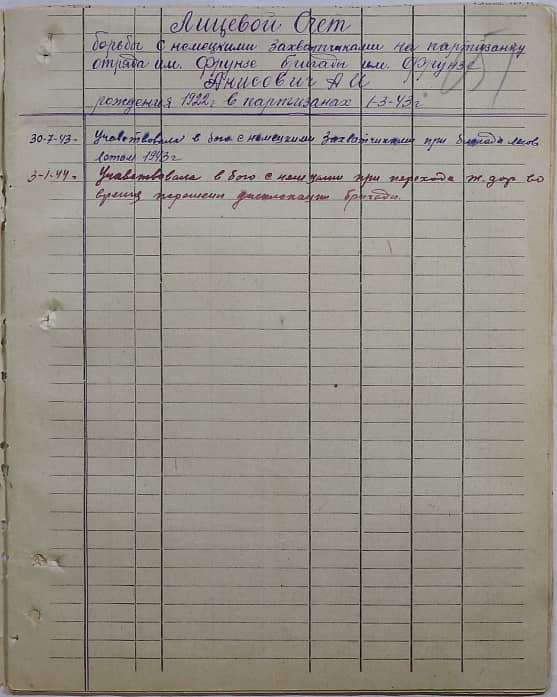 Лицевой Счет
борьбы с немецкими захватчиками на партизанку
отряда им. Фрунзе бригады им. Фрунзе
Анисович А И
рождения 1922г в партизанах 1-3-43г
30-7-43- Учавствовала в бою с немецкими захватчиками при блокаде лесов
летом 1943г
3-1-44- Учавствовала в бою с немцами при перехода ж. дор во
время перемены дислокации бригади.